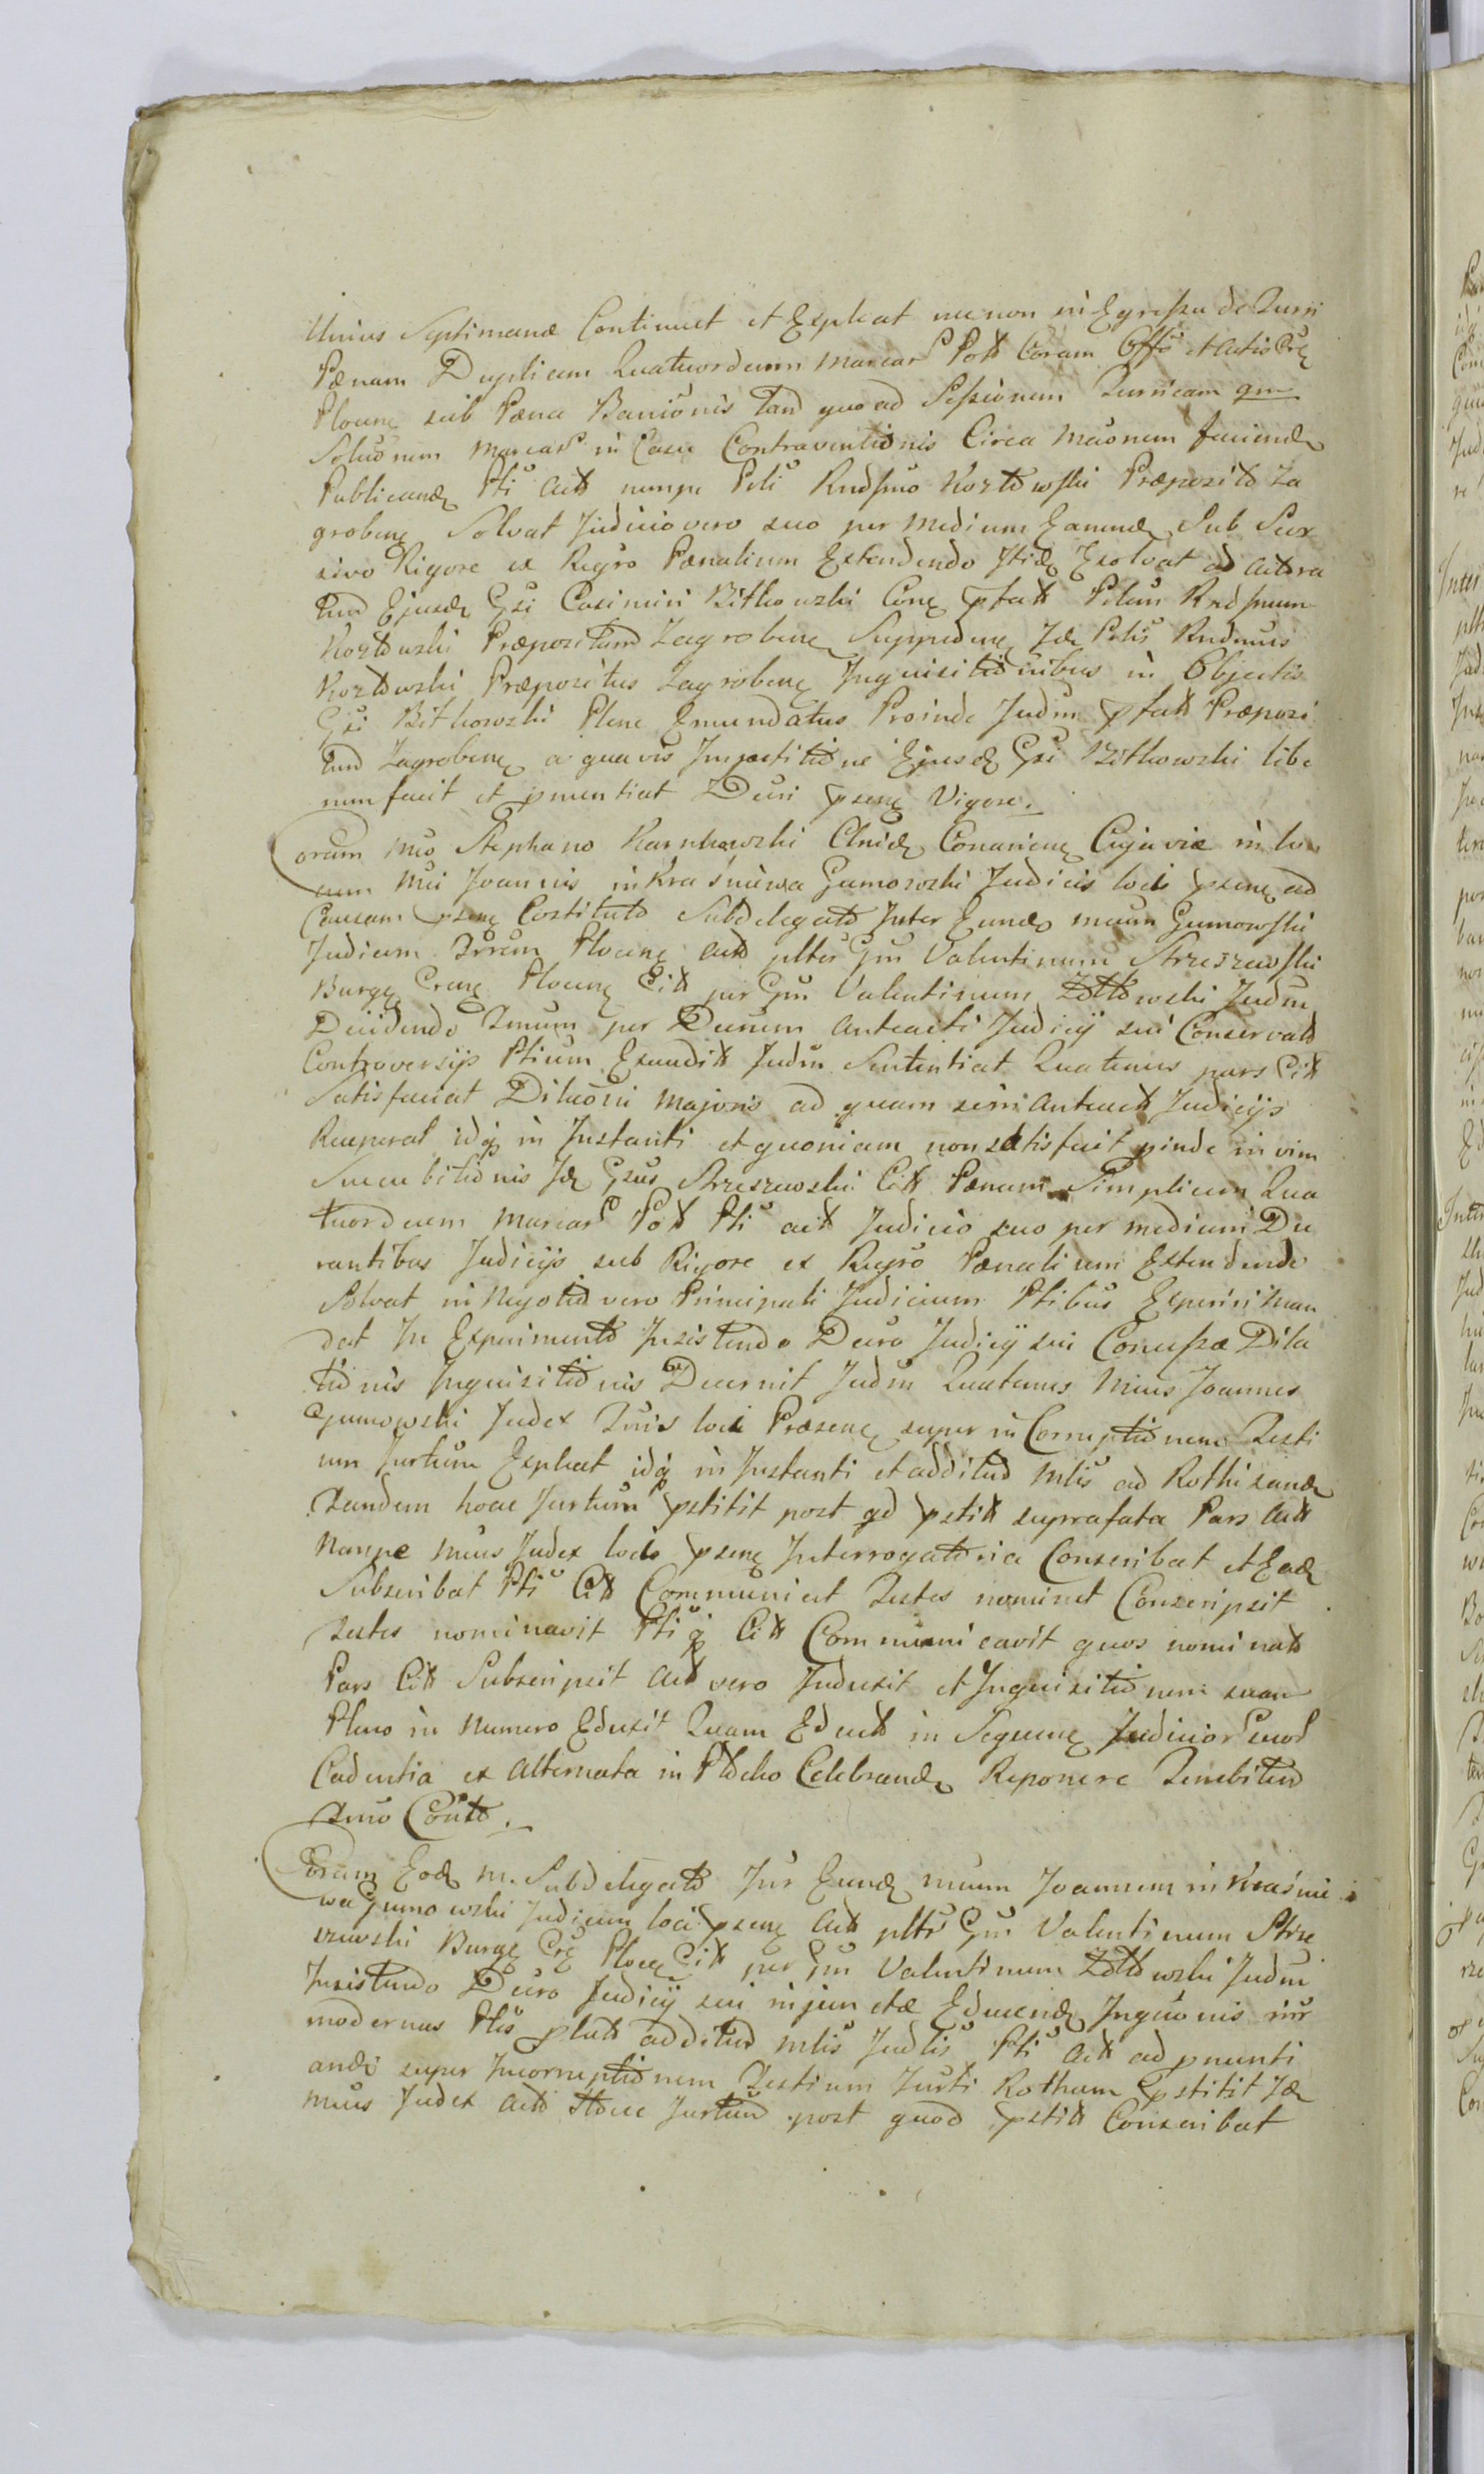 Unius Septimanæ Continuet et Expleat nec non in Egressu de Turri
Pænam Duplicem Quatuordecim Marcar Pott Coram Offo et Actis Cr
Plocen sub Pæna Banionis tam quo ad Sessionem Turricam qm
Soluonem Marcar in Casu Contraventionis Circa Maonem faciend
Publicand Pti Actt nempe Peli Rndssmo Kozłowski Præposito Za
groben Solvat Judicio vero suo per Medium Eamend Sub Succes
sivo Rigore ex Regro Pænalium Extendendo Itid Exolvat ad Actora
tum Ejusd Gsi Casimiri Bitkowski Con pfatt Pelum Rndssmum
Kozłowski Præpositum Zagroben Suppeden Id Pelis Rndmus
Kozłowski Præpositus Zagroben Inquisitionibus in Objectis
Gsi Bitkowski Plene Emundatus Proinde Judm pfatt Præposi
tum Zagroben a quavis Impetitione Ejusd Gsi Bitkowski libe
rum facit et pnuntiat Decri psen Vigore.
Coram Mco Stephano Karnkowski Clnid Conarien Cujaviæ in lo
cum Mci Joannis in Kraśniewa Gumowski Judicis loci psen ad
Causam psen Costituto Subdelegato Inter Eund mcum Gumowski
Judicem Trrem Plocen Actt pltes Gm Valentinum Strzeszewski
Burg Cren Plocen Citt per Gm Valentinum Żółtowski Judm
Decidendo Tmum per Decrum Anteacti Judicij sui Conservatt
Controversijs Ptium Exauditt Judm Sententiat Quatenus pars Citt
Satisfaciat Diluoni Majoris ad quam seri Anteactt Judicijs
Receperat idq in Instanti et quoniam non satisfecit pinde in vim
Succubitionis Id Gsus Strzeszewski Citt Pænam Simplicem Qua
tuordecim Marcar Pott Pti actt Judicio suo per medium Du
rantibus Judicijs sub Rigore ex Regro Pænalium Extendendo
Solvat in Negotio vero Principali Judicium Ptibus Experiri Man
dat In Experimento Insistendo Decro Judicij sui Concessæ Dila
tionis Inquisitionis Decernit Judm Quatenus Mcus Joannes
Gumowski Judex Trris loci Præsen super in Corruptionem Testi
um Jurtum Expleat idq in Instanti et additum Mlis ad Rothisand
Tandem hocce Jurtum pstitit post qd pstitt suprafata Pars Actt
Nempe Mcus Judex loci psen Interrogatoria Conscribat et Ead
Subscribat Pti Citt Communicet Testes nominet Conscripsit
Testes nominavit Pti q Citt Communicavit quos nominatt
Pars Citt Subscripsit Actt vero Induxit et Inquisitionem suam
Pleno in Numero Eduxit Quam Eductt in Sequen Judicior suor
Cadentia ex Alternata in Płocko Celebrand Reponere Tenebitur
Tmo Conto.
Coram Eod M. Subdelegato Inr Eund mcum Joannem in Kraśnie
wa Gumowski Judicem loci psen Actt pltes Gm Valentinum Strze
szewski Burg Cr Ploc Citt per Gm Valentinum Żółtowski Judm
Insistendo Decro Judicij sui injunctæ Educend Inquonis inr
modernas Ptes platt additum Mlis Judlis Pti Actt ad pnunti
andi super Incorruptionem Testium Jurti Rotham pstitit Id
Mcus Judex Actt Hocce Jurtum post quod pstitt Conscribat